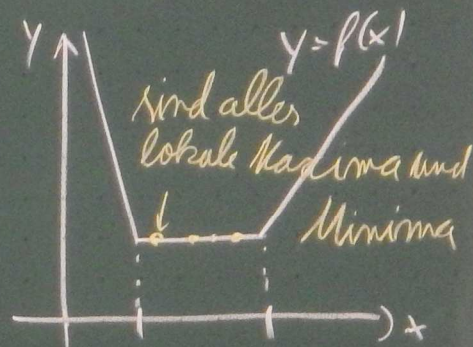 y
y = f(x)
sind alles
lokale Maxima und
Minima
x